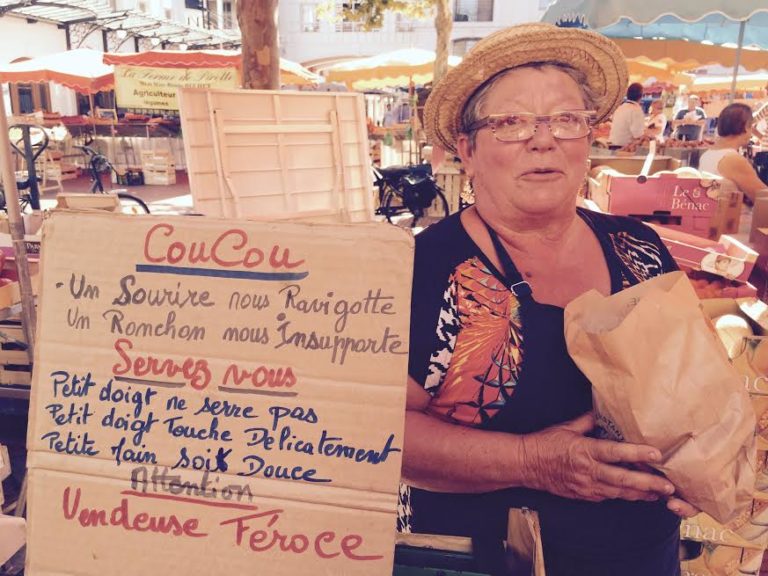 La Ferme de Birette
Agriculteur
légumes
CouCou
• Un Sourire nous Ravigotte
Un Ronchon nous Insupporte
Servez vous
Petit doigt ne serre pas
Petit doigt Touche Délicatement
Petite Main sois Douce
Attention
Vendeuse Féroce
Le
Bénac
Bénac